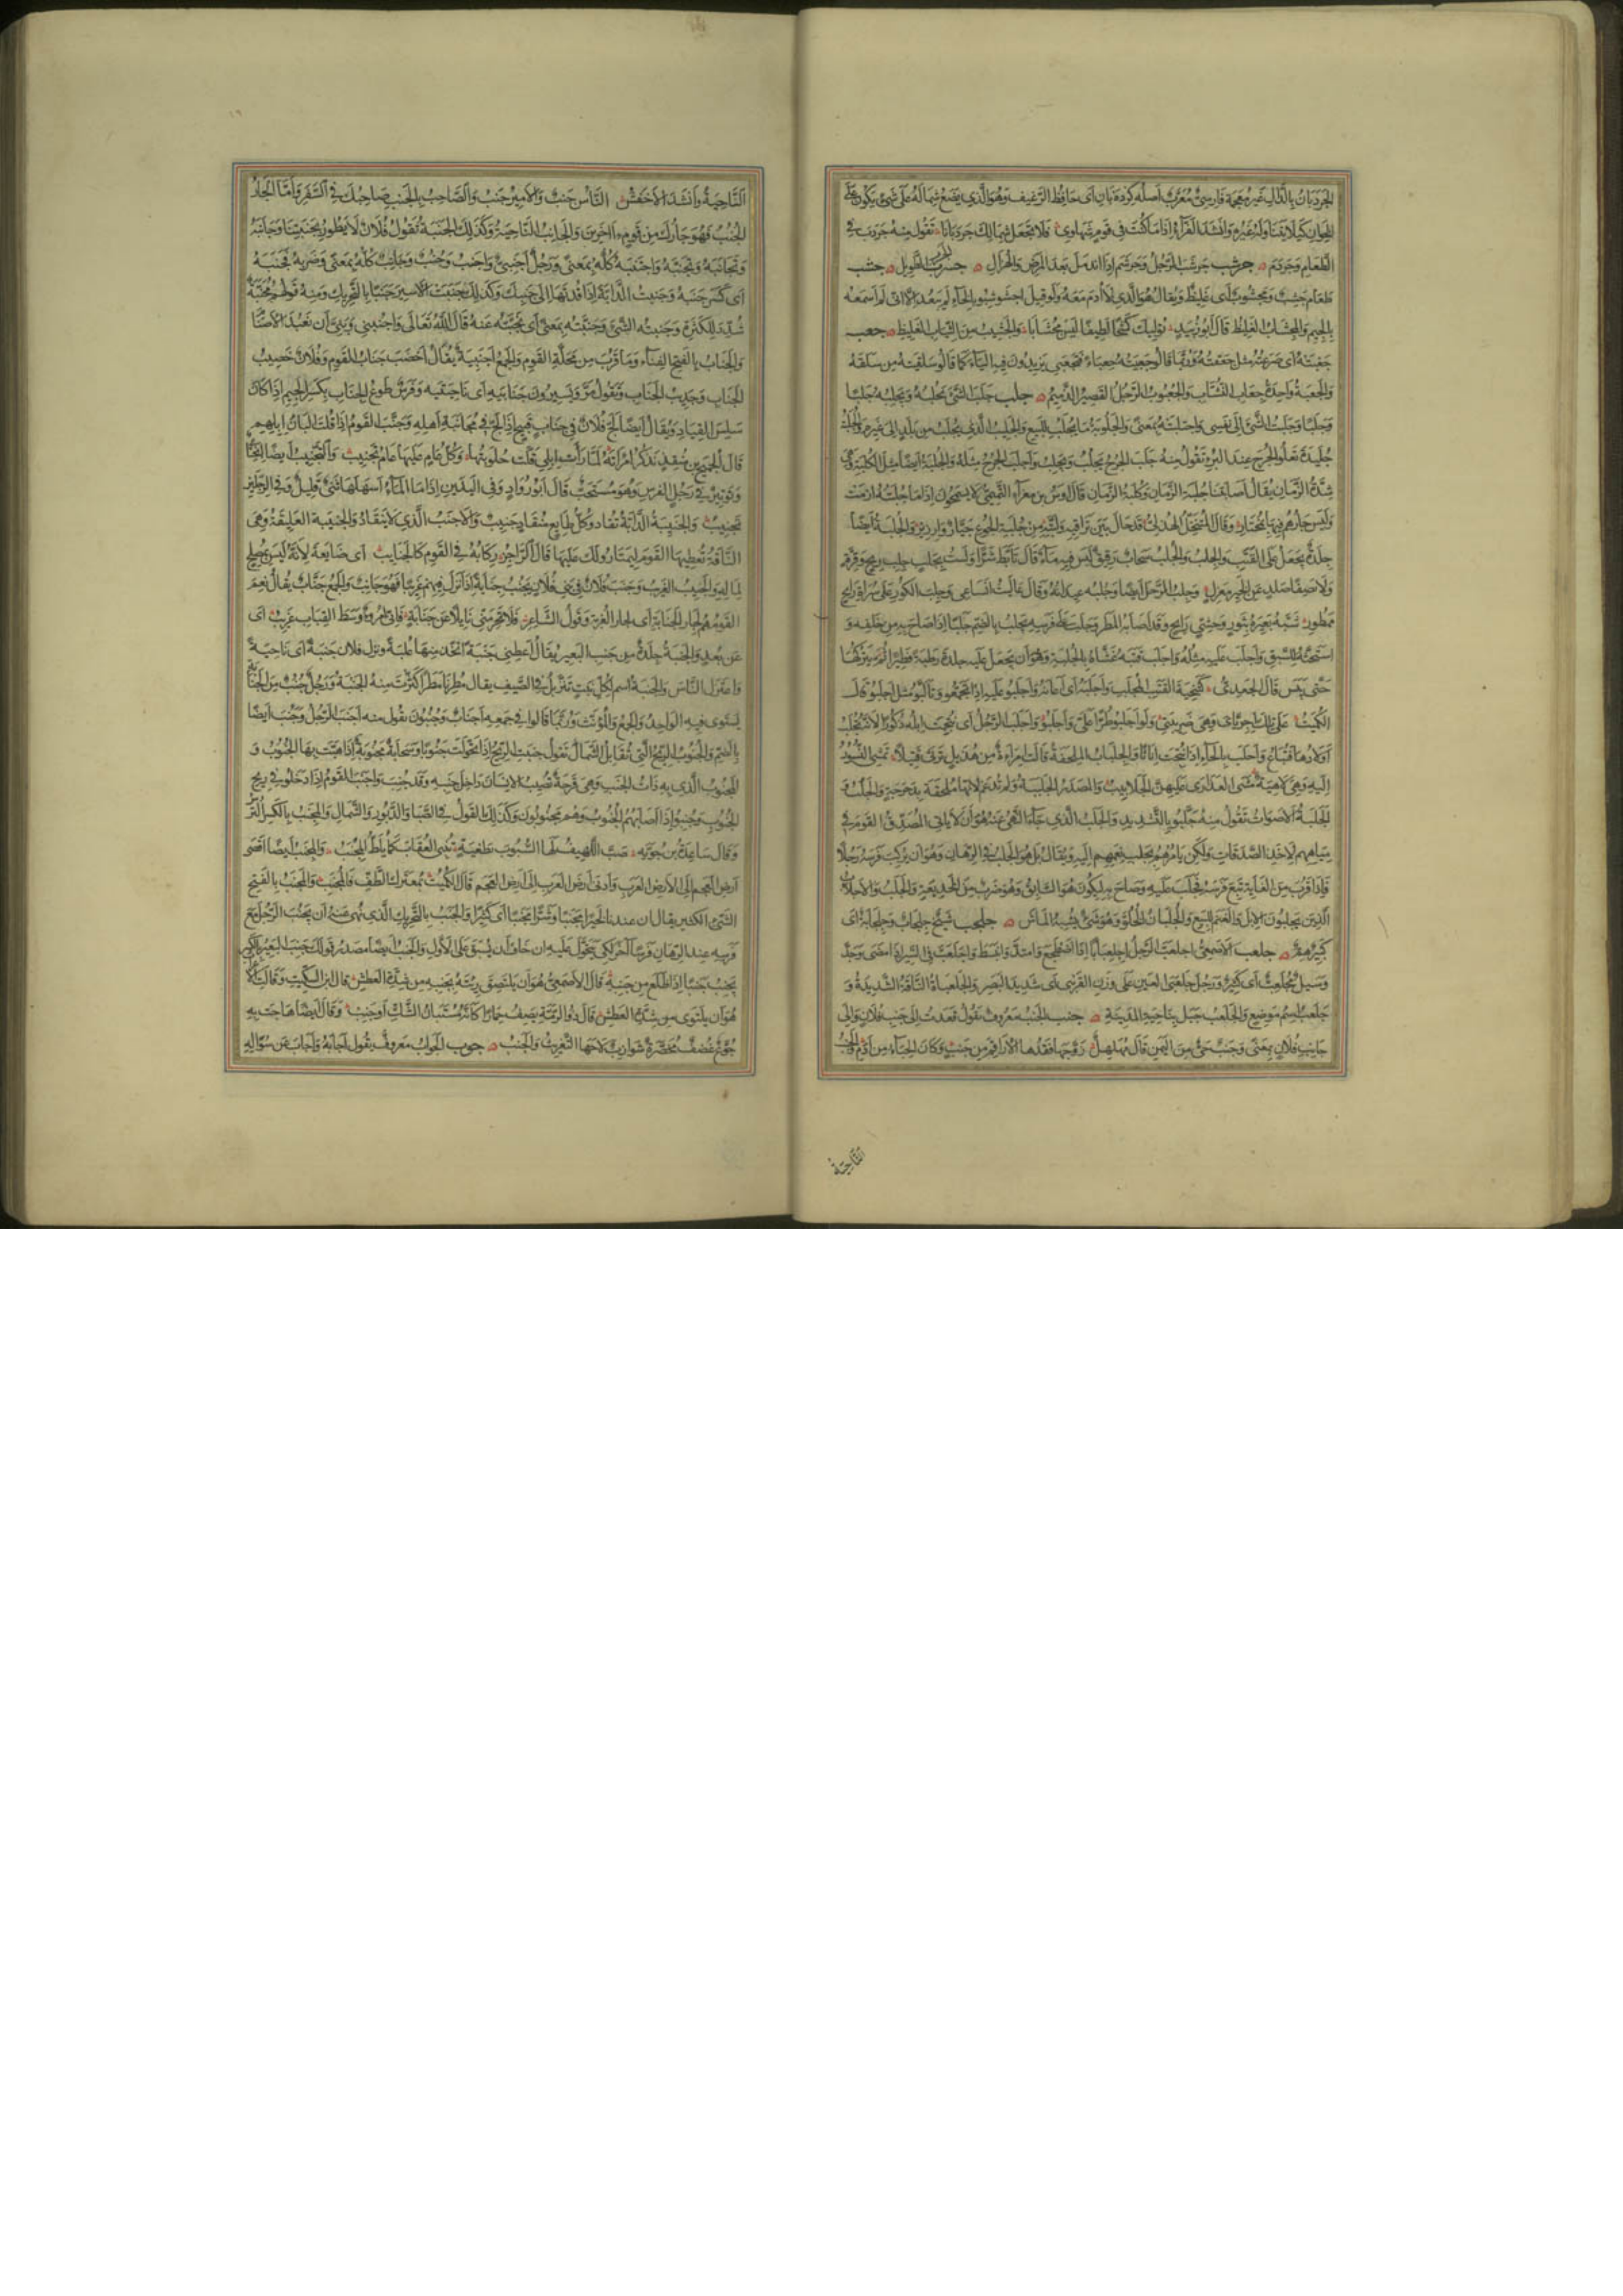 الجَرْدَبانُ بالدّال غير معجمة فارسيّ معرّب اصله كرده بان اى حافظ الرغيف وهو الذى يضع شماله على شىء يكون على
الخوان كيلا يتناوله غيره وانشد الفرّاء اذا ما كنت فى قوم شهاوى فلا تجعل شمالك جردبانا تقول منه جردب فى
الطعام وجردم جرشب جرشب الرجل وجرشم اذا اندمل بعد المرض والهزال جسرب الطويل جشب
طعام جشب ومجشوب اى غليظ ويقال هو الذى لا أدم معه ولو قيل اجشوشبوا بالخاء لم يبعد الا انى لم اسمعه
بالجيم والمجشاب الغليظ قال ابو زبيد توليك كشحا لطيفا ليس مجشابا والجشيب من الثياب الغليظ جعب
جعبته اى صرعته مثل جعفته وربما قالوا جعبيته جعباء فتجعبى يزيدون فيه الياء كما قالوا سلقيته من سلقه
والجعبة واحدة جعاب النشاب والجعبوب الرجل القصير الدميم جلب جلب الشىء يجلبه ويجلبه جلبا
وجلبا وجلبت الشىء الى نفسى واجتلبته بمعنى والجلوبة ما يجلب للبيع والجليب الذى يجلب من بلد الى غيره والجلبة
جليدة تعلو الجرح عند البرء تقول منه جلب الجرح يجلب ويجلب واجلب الجرح مثله والجلبة ايضا مثل الكلبة وهى
شدة الزمان يقال اصابتنا جلبة الزمان وكلبة الزمان قال اوس بن مغراء التميمى لا يسمحون اذا ما جلبة ازمت
وليس جارهم فيها بمختار وقال المتنخل الهذلى قد حال بين تراقيه ولبته من جلبة الجوع جيار وارزيز والجلبة ايضا
جلدة تجعل على القتب والجلب والجلب سحاب رقيق ليس فيه ماء قال تأبط شرا ولست بجلب جلب ريح وقرة
ولا بصفا صلد عن الخير معزل وجلب الرحل ايضا وجلبه عيدانه وقال عاليت انساعى وجلب الكور على سراة رائح
ممطور شبه بعيره بثور وحشى رايح وقد اصابه المطر وجلب على فرسه يجلب بالضم جلبا اذا صاح به من خلفه و
استحثه للسبق واجلب عليه مثله واجلب قتبه غشاه بالجلبة وهو ان يجعل عليه جلدة رطبة فطيرا ثم يتركها
حتى ييبس قال الجعدى كتنحية القتب المجلب واجلبه اى اعانه واجلبوا عليه اذا تجمعوا وتألبوا مثل احلبوا قال
الكميت على تلك اجرياى وهى ضريبتى ولو اجلبوا طرا على واحلبوا واجلب الرجل اى نتجت ابله ذكورا لانه تجلب
اولادها فتباع واحلب بالحاء اذا نتجت اناثا والجلباب الملحفة قالت امرأة من هذيل ترثى قتيلا تمشى النسور
اليه وهى لاهية مشى العذارى عليهن الجلابيب والمصدر الجلببة ولم تدغم لانها ملحقة بدحرجة والجلب و
الجلبة الاصوات تقول منه جلبوا بالتشديد والجلب الذى جاء النهى عنه هو ان لا يأتى المصدق القوم فى
مياههم لاخذ الصدقات ولكن يأمرهم بجلب نعمهم اليه ويقال بل هو الجلب فى الرهان وهو ان يركب فرسه رجلا
فاذا قرب من الغاية تبع فرسه فجلب عليه وصاح به ليكون هو السابق وهو ضرب من الخديعة والجلب والاجلاب
الذين يجلبون الابل والغنم للبيع والجلبان الخلر وهو شىء يشبه الماش جلحب شيخ جلحاب وجلحابة اى
كبير هم جلعب الاصمعى اجلعب الرجل اجلعبابا اذا اضطجع وامتد وانبسط واجلعب فى السير اذا مضى وجد
وسيل مجلعب اى كثير ورجل جلعبى العين على وزن القرنبى اى شديد البصر والجلعباة الناقة الشديدة و
جلعب اسم موضع والجلعب جبل بناحية المدينة جنب الجنب معروف تقول قعدت الى جنب فلان والى
جانب فلان بمعنى وجنب حى من اليمن قال مهلهل زوجها فقدها الاراقم من جنب وكان الحباء من ادم والجنب
الناحية
الناحية وانشد الاخفش الناس جنب والامير جنب والصاحب بالجنب صاحبك فى السفر واما الجار
الجنب فهو جارك من قوم آخرين والجانب الناحية وكذلك الجنبة تقول فلان لا يطور بجنبتنا وجانبه
وتجانبه وتجنبه واجتنبه كله بمعنى ورجل اجنبى واجنب وجنب وجانب كله بمعنى وضربه فجنبه
اى كسر جنبه وجنبت الدابة اذا قدتها الى جنبك وكذلك جنبت الاسير جنبا بالتحريك ومنه قولهم مجنبة
شدد للكثرة وجنبته الشىء وجنبته بمعنى اى نحيته عنه قال الله تعالى واجنبنى وبنى ان نعبد الاصنا
والجناب بالفتح الفناء وما قرب من محلة القوم والجمع اجنبة يقال اخصب جناب القوم وفلان خصيب
الجناب وجديب الجناب وتقول مروا يسيرون جنابيه اى ناحيتيه وفرس طوع الجناب بكسر الجيم اذا كان
سلس القياد ويقال ايضا لج فلان فى جناب قبيح اذا لج فى مجانبة اهله وجنب القوم اذا قلت البان ابلهم
قال الجميح بن منقذ يذكر امرأته لما رأت ابلى قلت حلوبتها وكل عام عليها عام تجنيب والتجنيب ايضا انحنا
وتوتير فى رجل الفرس وهو مستحب قال ابو دواد وفى اليدين اذا ما الماء اسهلها ثنى قليل وفى الرجلين
تجنيب والجنيبة الدابة تقاد وكل طايع منقاد جنيب والاجنب الذى لا ينقاد والجنيبة العليقة وهى
الناقة تعطيها القوم ليمتاروا لك عليها قال الراجز ركابه فى القوم كالجنايب اى ضايعة لانه ليس بمصلح
لماله والجنيب الغريب وجنب فلان فى بنى فلان يجنب جنابة اذا نزل فيهم غريبا فهو جانب والجمع جناب يقال نعم
القوم هم لجار الجنابة اى لجار الغربة وقول الشاعر فلا تحرمنى نايلا عن جنابة فانى امرؤ وسط القباب غريب اى
عن بعد والجنبة جلدة من جنب البعير يقال اعطنى جنبة اتخذ منها علبة ونزل فلان جنبة اى ناحية
واعتزل الناس والجنبة اسم لكل نبت يتربل فى الصيف يقال مطرنا مطرا كثرت منه الجنبة ورجل جنب من الجنابة
يستوى فيه الواحد والجمع والمؤنث وربما قالوا فى جمعه اجناب وجنبون تقول منه اجنب الرجل وجنب ايضا
بالضم والجنوب الريح التى تقابل الشمال تقول جنبت الريح اذا تحولت جنوبا وسحابة مجنوبة اذا هبت بها الجنوب و
المجنوب الذى به ذات الجنب وهى قرحة تصيب الانسان داخل جنبه وقد جنب واجنب القوم اذا دخلوا فى ريح
الجنوب وجنبوا اذا اصابهم الجنوب وهم مجنوبون وكذلك القول فى الصبا والدبور والشمال والمجنب بالكسر الترس
وقال ساعدة بن جوية صب اللهيف لها السبوب بطغية تنبى العقاب كما يلط المجنب والمجنب ايضا اقصى
ارض العجم الى الارض العرب وادنى ارض العرب الى ارض العجم قال الكميت بمعترك الطف فالمجنب والمجنب بالفتح
الشىء الكثير يقال ان عندنا لخيرا مجنبا وشرا مجنبا اى كثيرا والجنب بالتحريك الذى نهى عنه ان يجنب الرجل مع
فرسه عند الرهان فرسا آخر لكى يتحول عليه ان خاف ان يسبق على الاول والجنب ايضا مصدر قولك جنب البعير بالكسر
يجنب جنبا اذا ظلع من جنبه قال الاصمعى هو ان يلتصق رئته بجنبه من شدة العطش قال ابن السكيت وقالت
هو ان يلتوى من شدة العطش قال ذو الرمة يصف حمارا كانه مستبان الشك او جنب وقال ايضا هاجت به
جوع غضف مخصرة شوازب لاحها التغريث والجنب جوب الجواب معروف يقول اجابه واجاب عن سؤاله